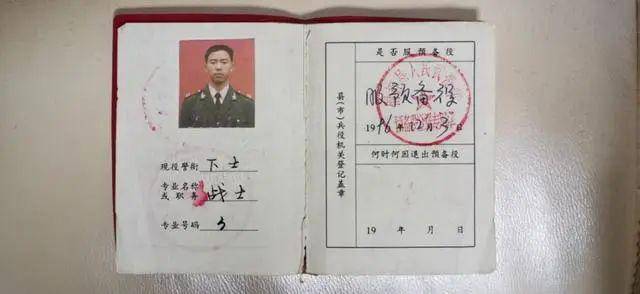 现役警衔 下士
专业名称
或职务 战士
专业号码
县(市)兵役机关登记盖章
是否服预备役
服预备役
1996年12月3日
何时何因退出预备役
19 年 月 日